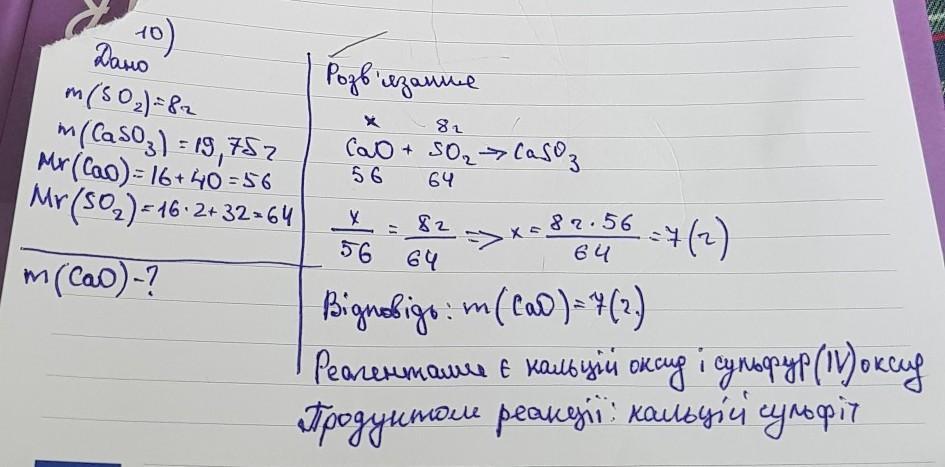 10)
Дано
m(SO₂)=8г
m(CaSO₃)=19,75г
Mr(CaO)=16+40=56
Mr(SO₂)=16·2+32=64
m(CaO)-?
Розв'язання
x 8г
CaO + SO₂ → CaSO₃
56 64
x/56 = 8г/64 => x = 8г·56/64 = 7(г)
Відповідь: m(CaO)=7(г.)
Реагентами є кальцій оксид і сульфур(IV) оксид
Продуктом реакції: кальцій сульфіт